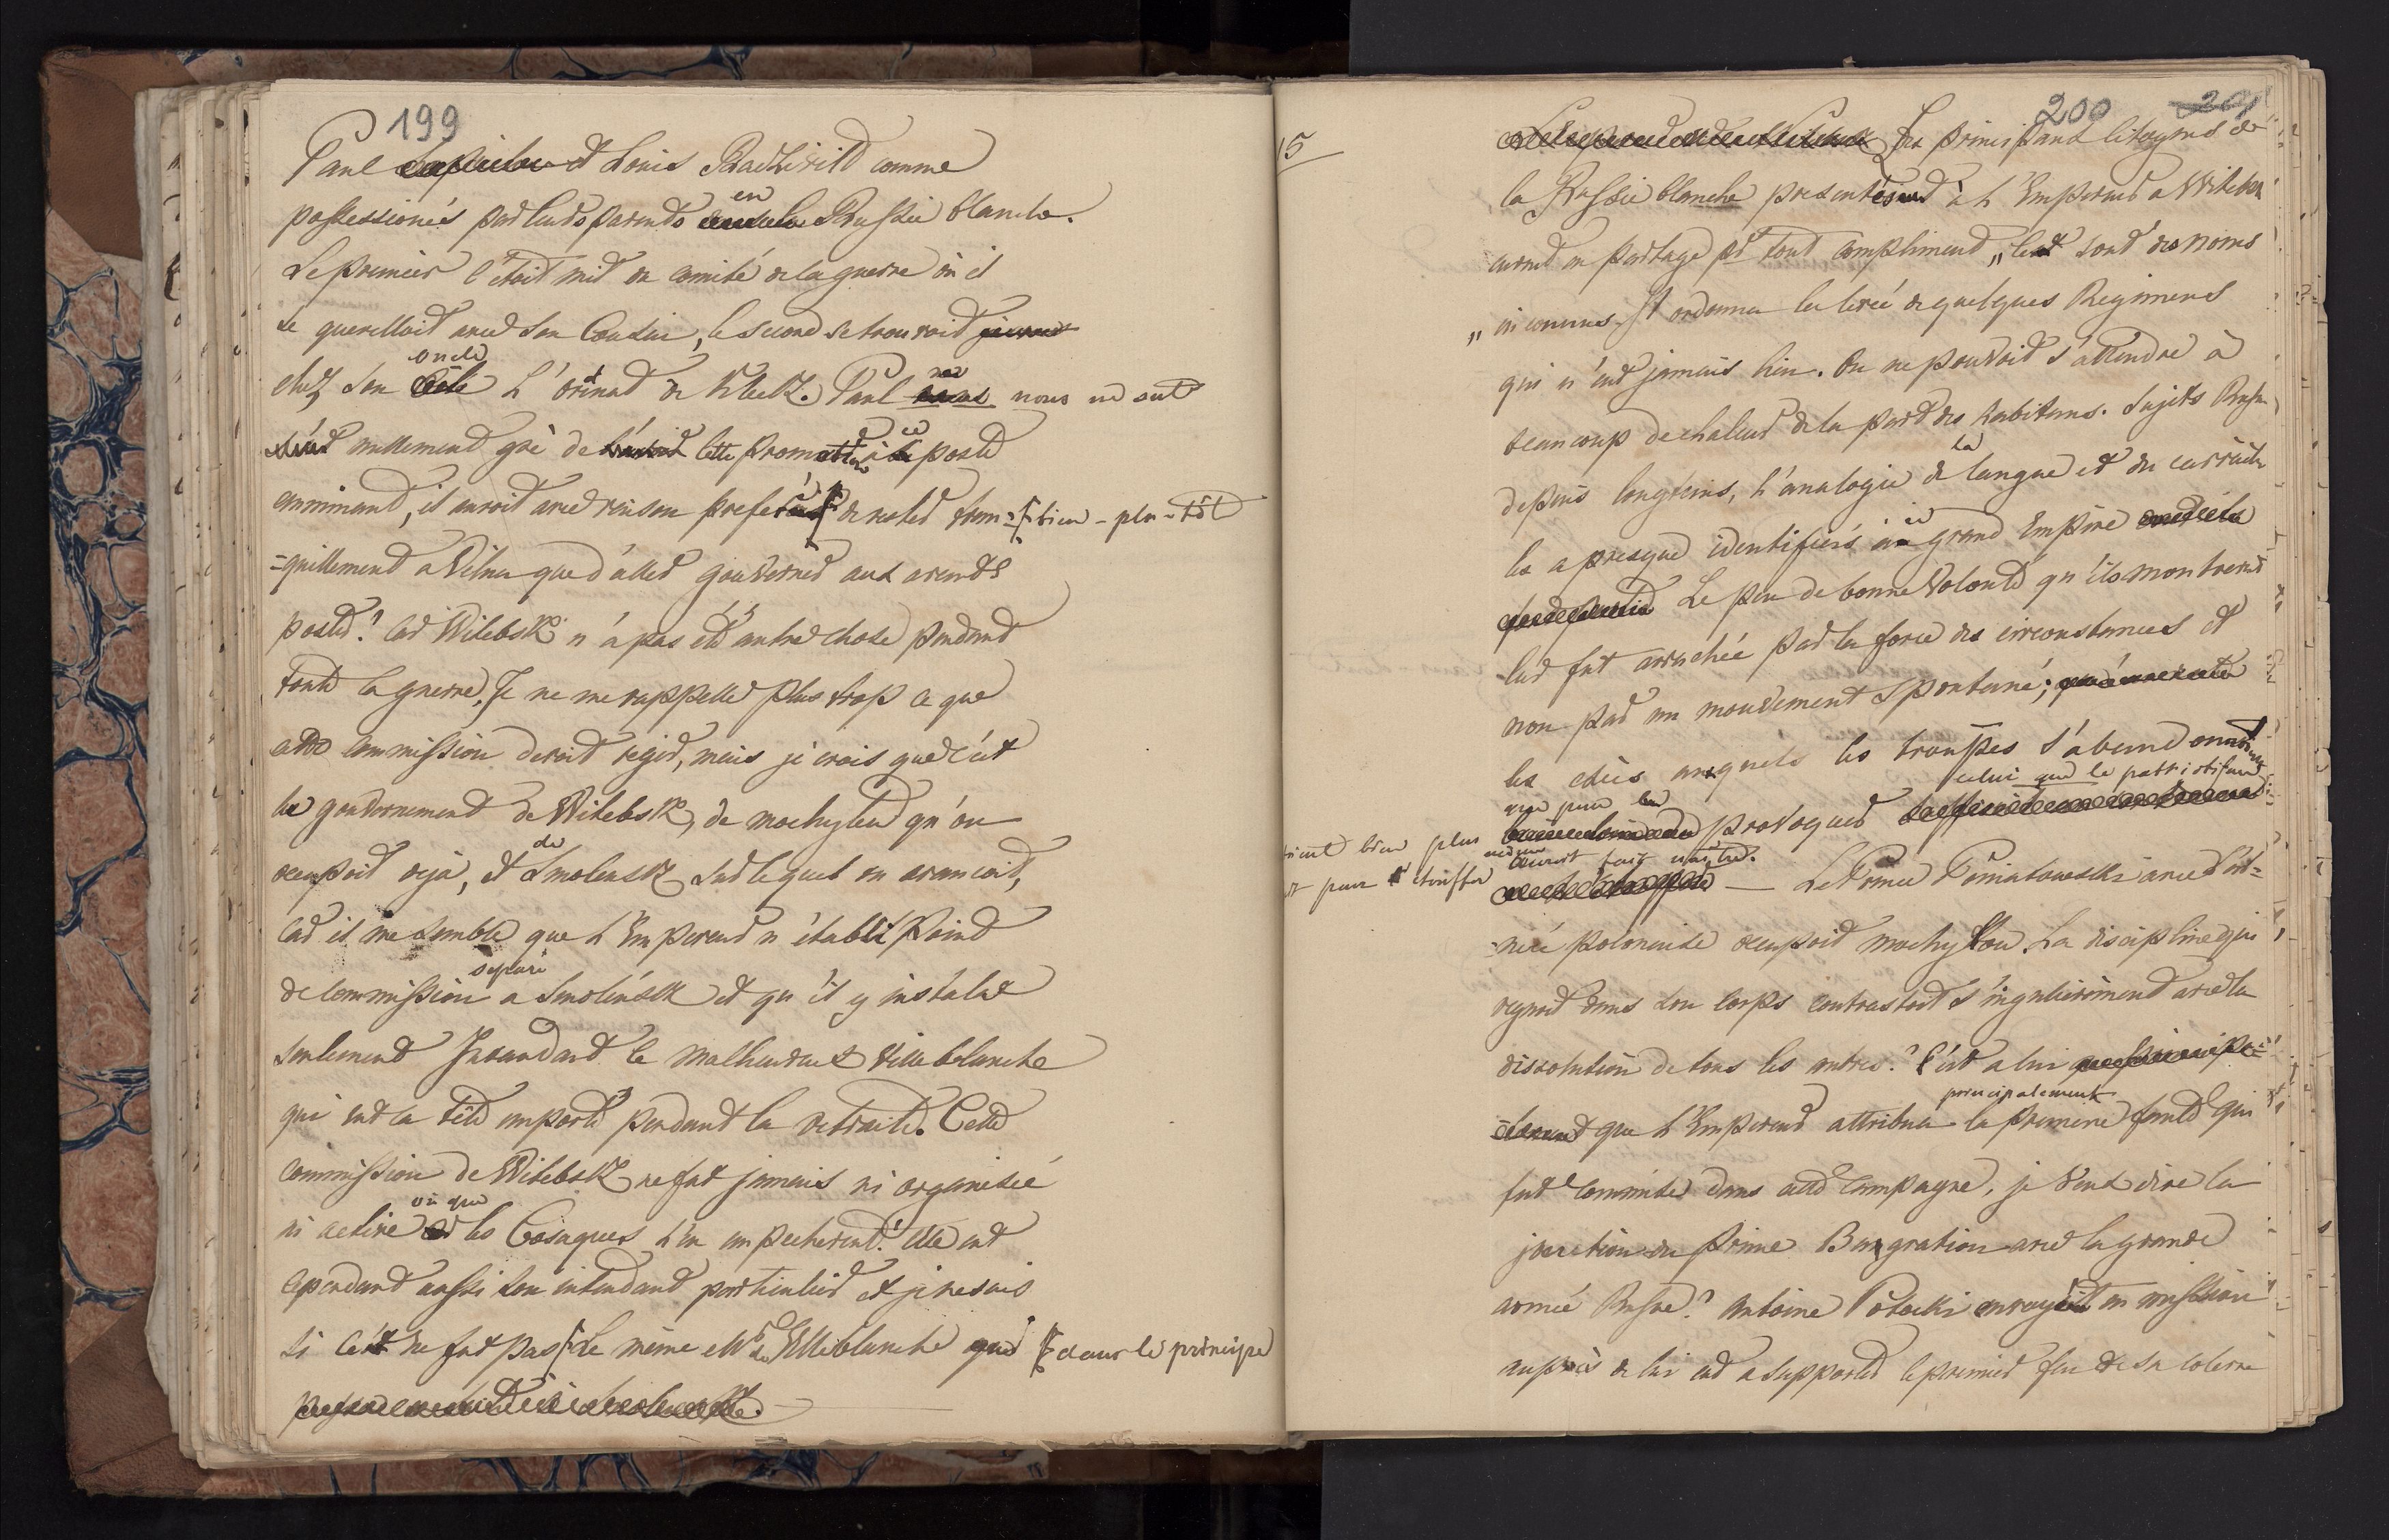 199
Paul Sapieha et Louis Radzivild comme
possessionés par leurs parents en Russie blanche.
Le premier l'étoit mit en comité de la guerre où il
se querelloit avec son Cousin, le second se trouvoit
chez son oncle L'ordinat de Kletzk. Paul nous ne sut
nullement gré de cette promotion à ce poste
imminent, il auroit avec raison preferé de rester tran= bien-plu-tôt
=quillement a Vilna que d'aller gouverner aux avents
postes. Car Witebsk n'a pas été autre chose pendant
toute la guerre. Je ne me rappelle plus trop ce que
cette commission devoit regir, mais je crois que c'eut
le gouvernement de Witebsk, de mochylew qu'on
occupoit deja, et de Smolensk sur lequel on avancoit,
Car il me semble que L'Empereur n'établit point
de commission separé a Smolénsk et qu'il y instala
seulement Intendant le malheureux Villeblanche
qui eut la tête emporté pendant la retraite. Cette
commission de Witebsk ne fut jamais ni organisée
ni active vu que les Cosaques l'en empecherent. Elle eut
cependant aussi son intendant particulier et je ne sais
si ce ne fut pas le même Mr de Villeblanche dans le principe
200 201
15
Les principaux citoyens de
la Russie blanche presentés à L'Empereur a Witebsk
eurent en partage pr tout compliment „ce sont des noms
„inconnus. Il ordonna la levée de quelques Regimens
qui n'eut jamais lieu. On ne pouvoit s'attendre à
beaucoup de chaleur de la part des habitans. Sujets Russes
depuis longtems, L'analogie de la langue et du carractere
les a presque identifiés à ce grand Empire
Le peu de bonne volonté qu'ils montrerent
leur fut arrachée par la force des circonstances et
non par un mouvement spontané;
les excès auxquels les troupes s'abandonnoient
bien plus que pour provoquer celui que le patriotisme
et pour étouffer auroit fait naitre.
— Le Prince Poniatowski avec l'ar=
=mée polonaise occupoit mochylow. La discipline qui
regnoit dans son Corps contrastoit singulierement avec la
dissolution de tous les autres. C'est a lui
que L'Empereur attribua principalement la premiere faute qui
fut commise dans cette campagne, je veux dire la
jonction du prince Bagration avec la grande
armée Russe. Antoine Potocki envoyé en mission
auprès de lui eut a supporter le premier feu de sa colere